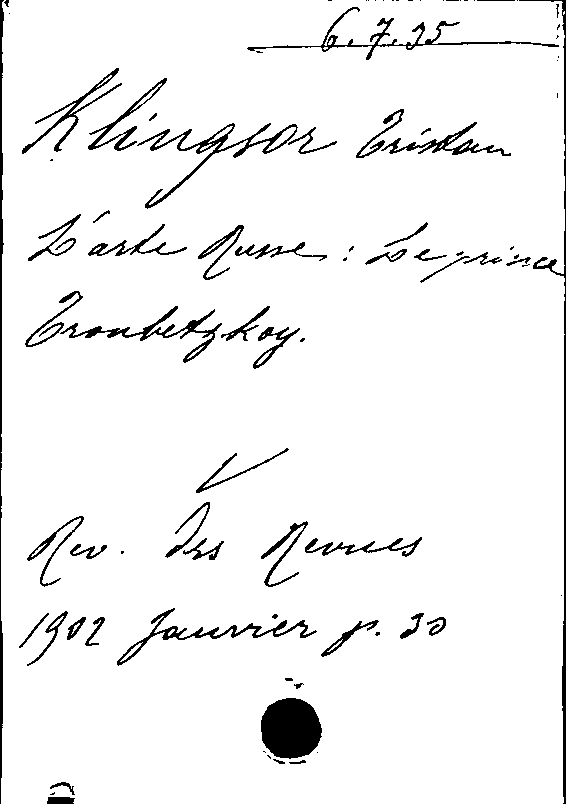 6.7.35
Klingsor Tristan
L'arte Russe : Le prince
Troubetzkoy.
Rev. des Revues
1902 Janvier p. 30